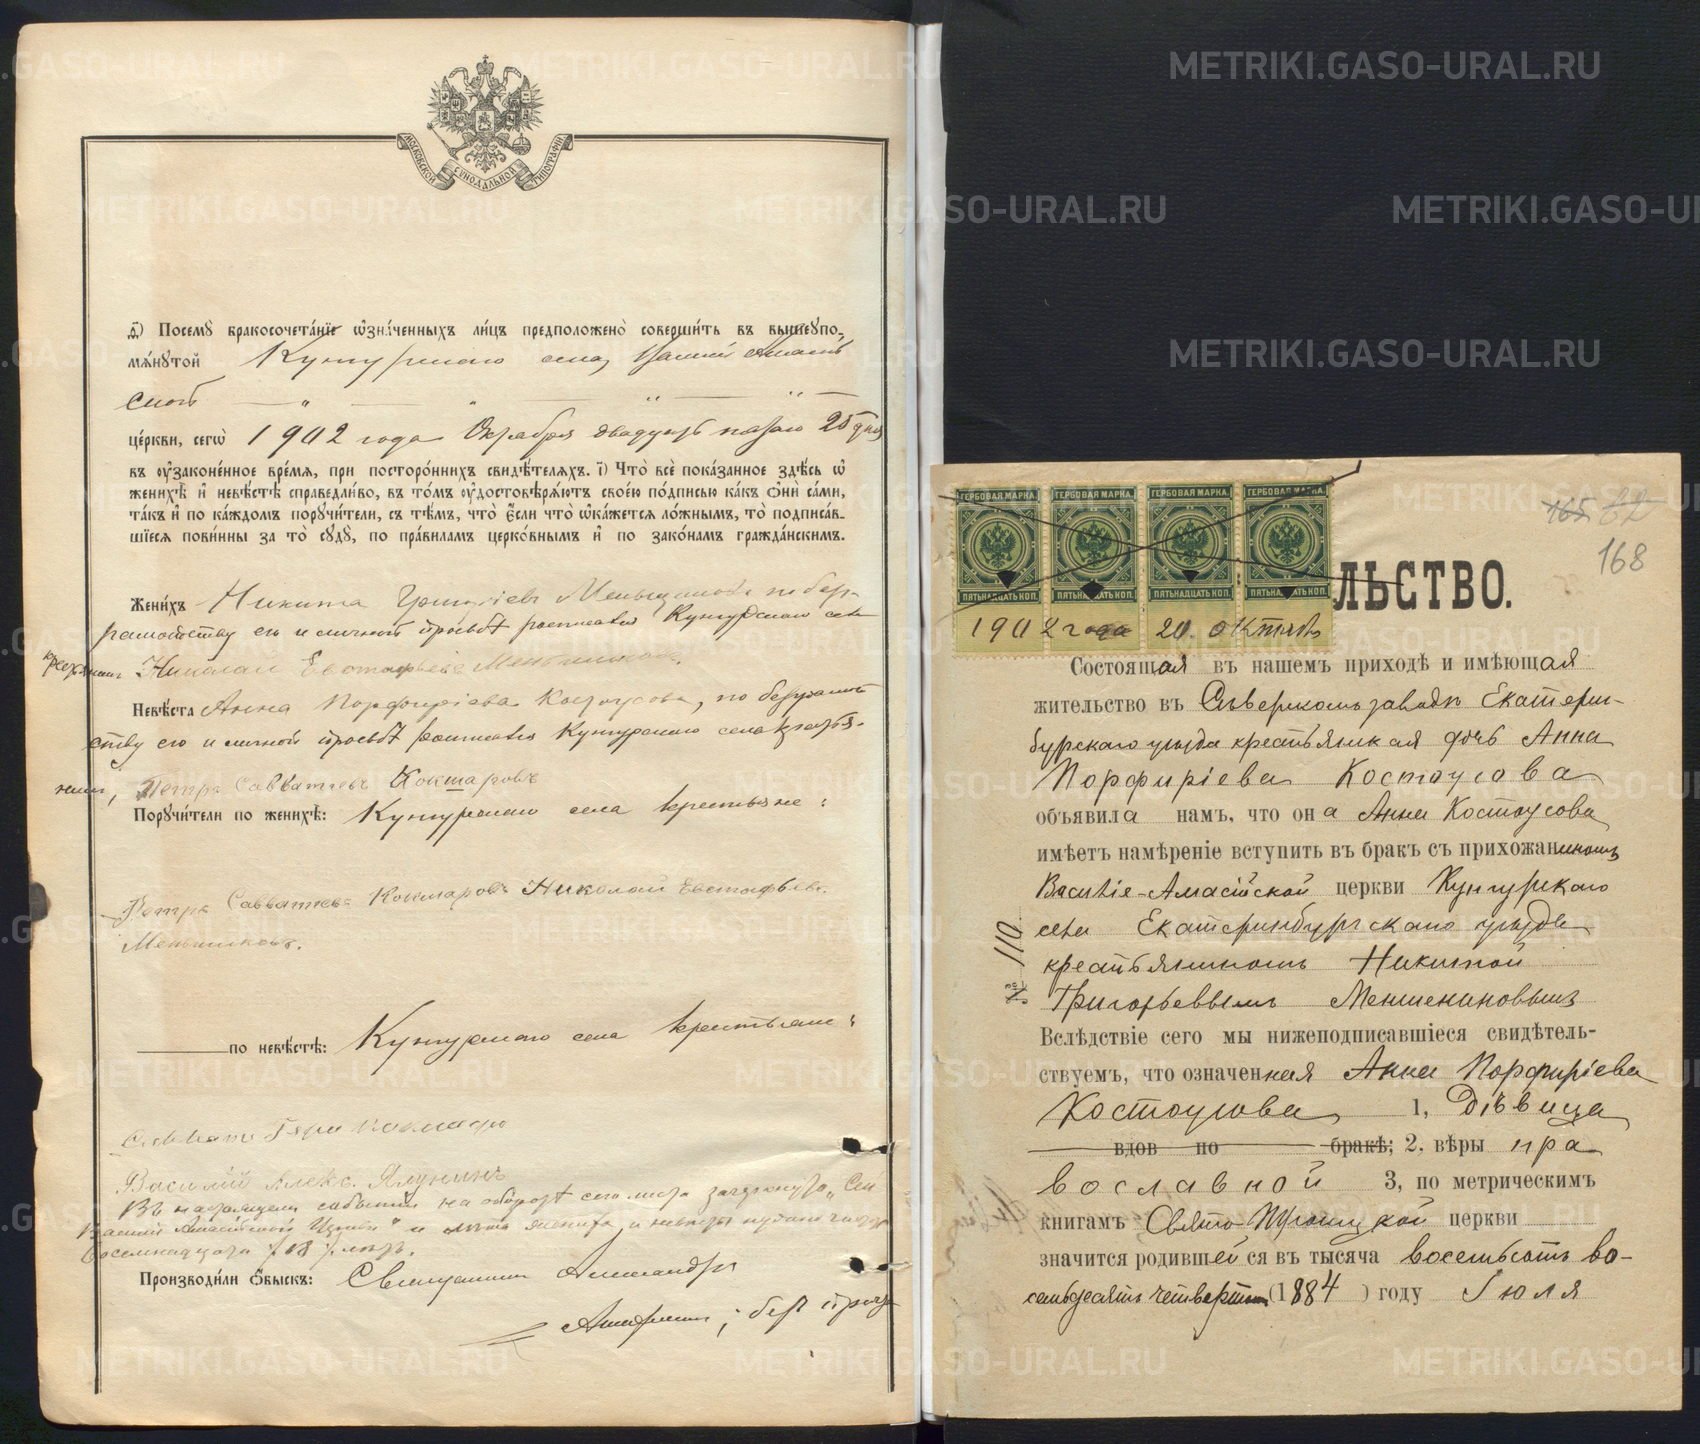 МОСКОВСКОЙ СѴНОДАЛЬНОЙ ТИПОГРАФІИ
д҃) Посемꙋ̀ бракосочета́нїе ѡ҆зна́ченныхъ ли́цъ предположенò соверши́ть въ вышеꙋпо-
мѧ́нꙋтой Кунгурскаго села, Василій Амасій
ской — " — " — " — " —
це́ркви, сегѡ̀ 1902 года Октября двадцать пятаго 25 дня
въ ᲂу҆зако́ненное вре́мѧ, при посторо́ннихъ свидѣ́телѧхъ. і҃) Что̀ всѐ пока́занное здѣ́сь ѡ҆
женихѣ̀ и҆ невѣ́стѣ справедли́во, въ то́мъ ᲂу҆достовѣрѧ́ютъ свое́ю по́дписью ка́къ ѻ҆нѝ са́ми,
та́къ и҆ по ка́ждомъ порꙋчи́тели, съ тѣ́мъ, что̀ є҆́сли что̀ ѡ҆ка́жетсѧ ло́жнымъ, то̀ подписа́в-
шїесѧ пови́нны за то̀ сꙋдꙋ̀, по пра́виламъ церко́внымъ и҆ по зако́намъ гражда́нскимъ.
Жени́хъ Никита Григорьевъ Меньщиковъ по без-
грамотству его и личной просьбѣ росписался Кунгурскаго села
крестьянинъ Николай Евстафьевъ Меньшиковъ.
Невѣ́ста Анна Порфиріева Костоусова, по безграмот
ству его и личной просьбѣ росписался Кунгурскаго села крестья-
нинъ, Петръ Савватеевъ Кокшаровъ
Порꙋчи́тели по женихѣ̀: Кунгурскаго села крестьяне:
Петръ Савватеевъ Кокшаровъ Николай Евстафьевъ
Меньшиковъ.
по невѣ́стѣ: Кунгурскаго села крестьяне:
Василій Алекс. Ялунинъ
Въ настоящемъ на оборотѣ сего листа зачеркнуто „Св
Василій Амасійской Церкви" и лѣта жениха и невѣсты
восемнадцать /18/ лѣтъ.
Производи́ли ѻ҆́быскъ: Священникъ Александръ
165 82
168
ГЕРБОВАЯ МАРКА. ГЕРБОВАЯ МАРКА. ГЕРБОВАЯ МАРКА. ГЕРБОВАЯ МАРКА.
ПЯТЬНАДЦАТЬ КОП. ПЯТЬНАДЦАТЬ КОП. ПЯТЬНАДЦАТЬ КОП. ПЯТЬНАДЦАТЬ КОП.
ЛЬСТВО.
1902 года 20 октяб.
Состоящая въ нашемъ приходѣ и имѣющая
жительство въ Сѣверскомъ заводѣ Екатерин-
бургскаго уѣзда крестьянская дочь Анна
Порфиріева Костоусова
объявила намъ, что она Анна Костоусова
имѣетъ намѣреніе вступить въ бракъ съ прихожаниномъ
Василіе-Амасійской церкви Кунгурскаго
села Екатеринбургскаго уѣзда
крестьяниномъ Никитой
Григорьевымъ Меншениновымъ
№ 110
Вслѣдствіе сего мы нижеподписавшіеся свидѣтель-
ствуемъ, что означенная Анна Порфиріева
Костоусова 1, Дѣвица
вдов по бракѣ; 2, вѣры пра
вославной 3, по метрическимъ
книгамъ Свято-Троицкой церкви
значится родившейся въ тысяча восемьсотъ во-
семьдесятъ четвертомъ (1884) году Іюля
METRIKI.GASO-URAL.RU